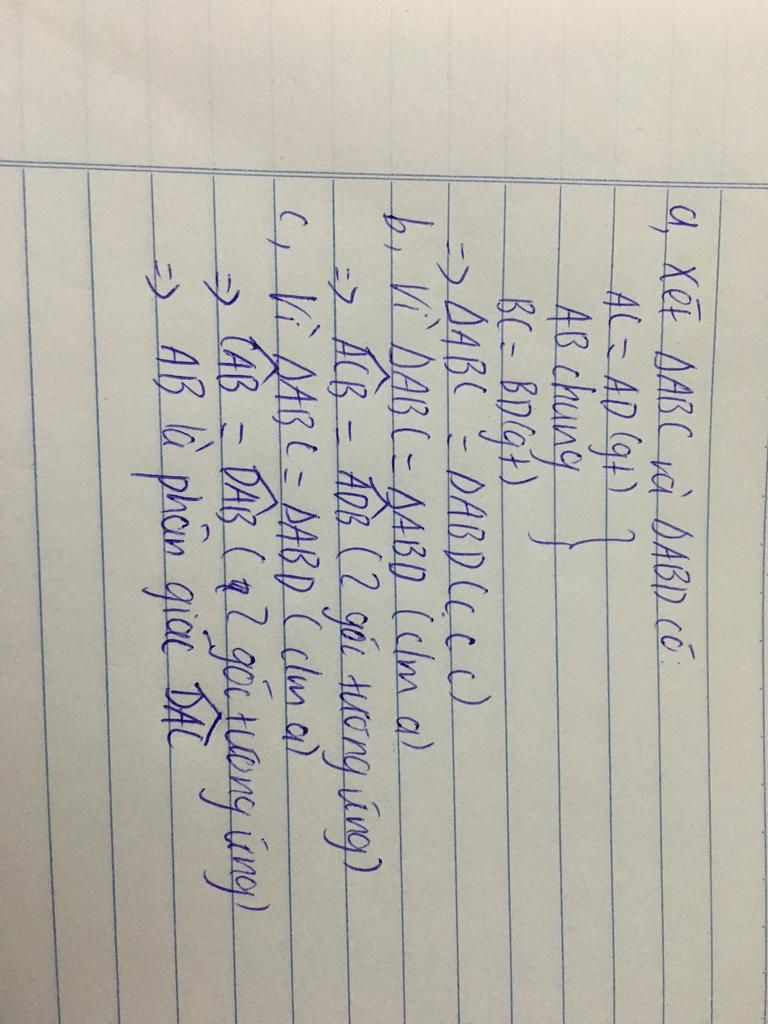 a, Xét ΔABC và ΔABD có:
AC = AD (gt)
AB chung
BC = BD (gt) }
=> ΔABC = ΔABD (c.c.c)
b, Vì ΔABC = ΔABD (c/m a)
=> ACB̂ = ADB̂ (2 góc tương ứng)
c, Vì ΔABC = ΔABD (c/m a)
=> CAB̂ = DAB̂ (2 góc tương ứng)
=> AB là phân giác DAĈ